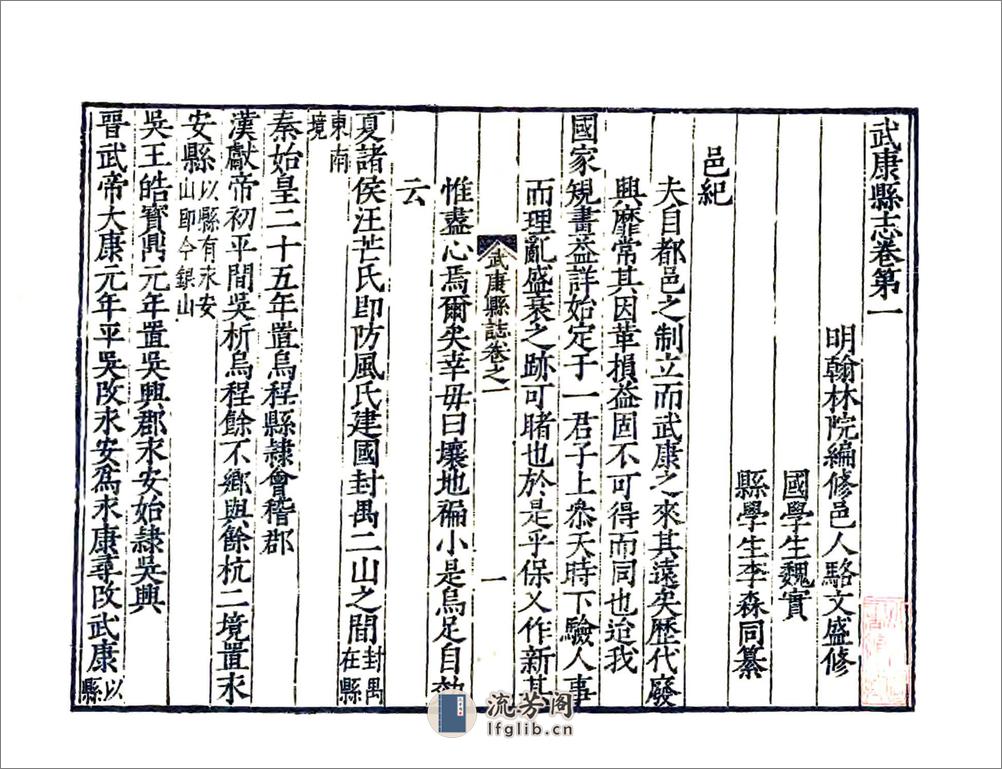 武康縣志卷第一
明翰林院編修邑人駱文盛修
國學生魏實
縣學生李森同纂
邑紀
夫自都邑之制立而武康之來其遠矣歷代廢
興靡常其因革損益固不可得而同也迨我
國家規畫益詳始定于一君子上叅天時下驗人事
而理亂盛衰之跡可睹也於是乎保乂作新其
惟盡心焉爾矣幸毋曰壤地褊小是烏足自効
云
武康縣誌卷之一
一
夏諸侯汪芒氏即防風氏建國封禺二山之間封禺在縣
東南
境
秦始皇二十五年置烏程縣隷會稽郡
漢獻帝初平間吳析烏程餘不鄉與餘杭二境置永
安縣以縣有永安
山即今銀山
吳王皓寶鼎元年置吳興郡永安始隷吳興
晋武帝大康元年平吳改永安爲永康尋改武康以
縣
流芳阁
lfglib.cn